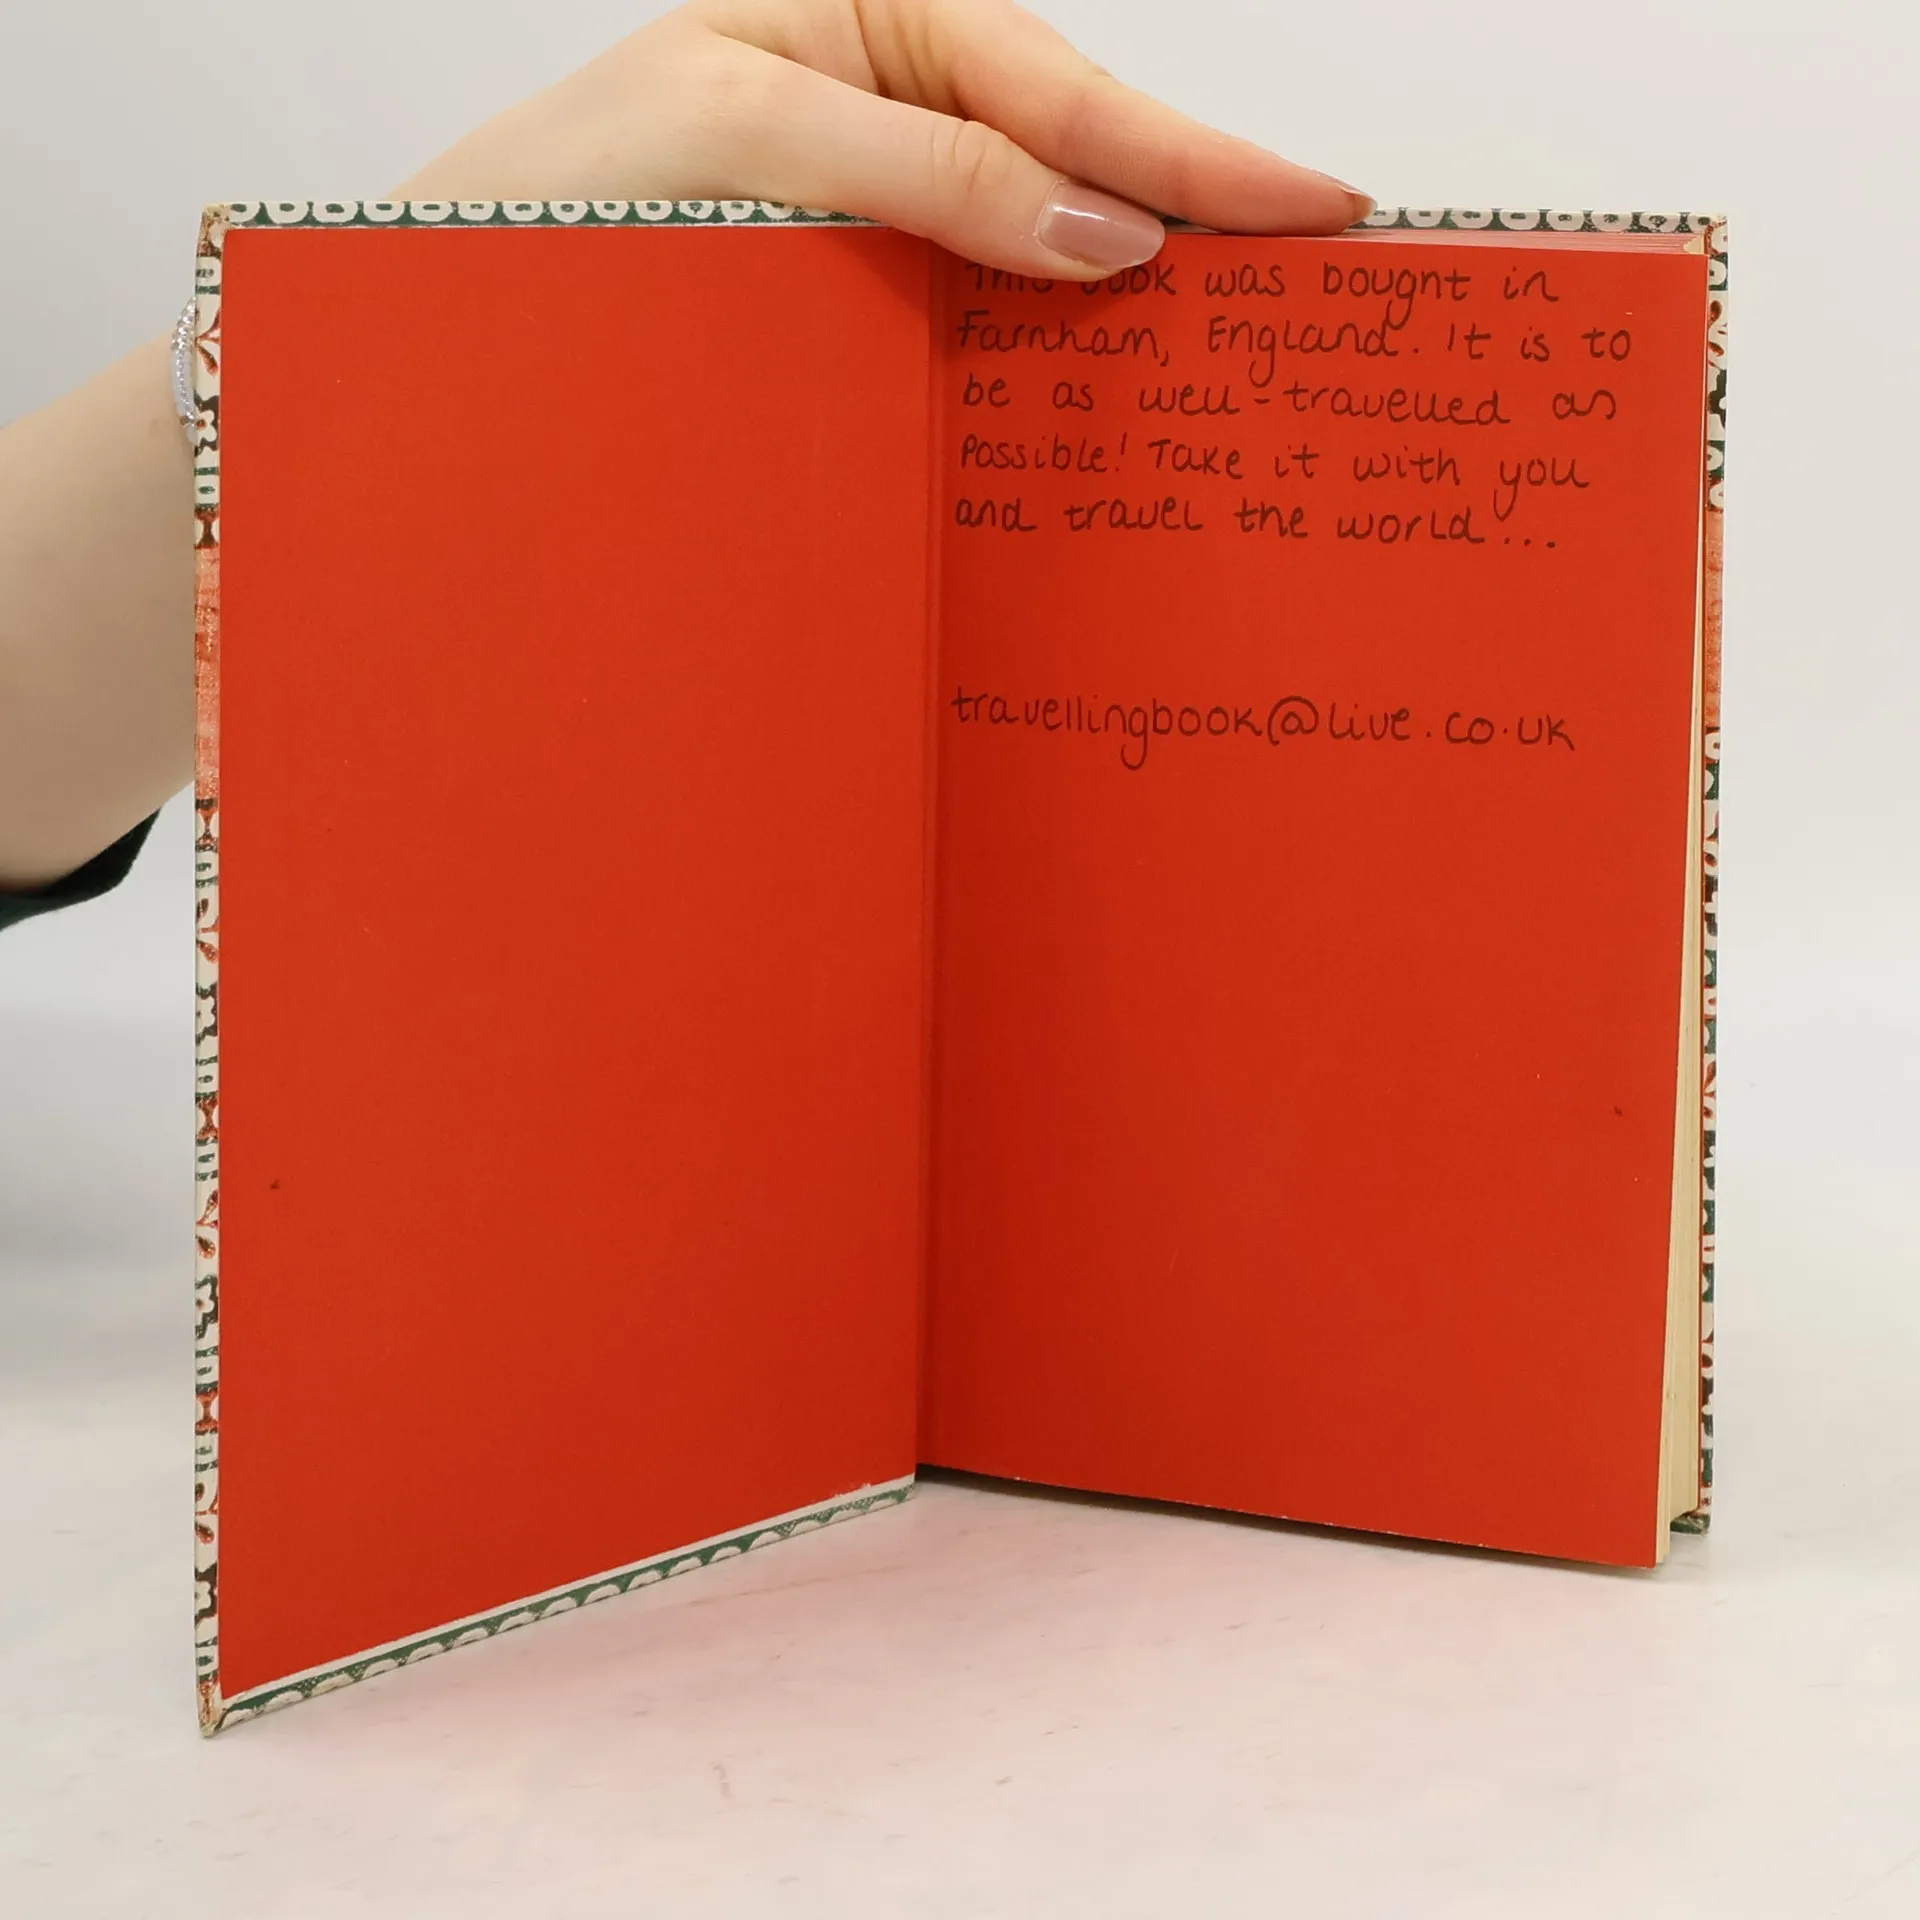 This book was bought in
Farnham, England. It is to
be as well-travelled as
possible! Take it with you
and travel the world...
travellingbook@live.co.uk